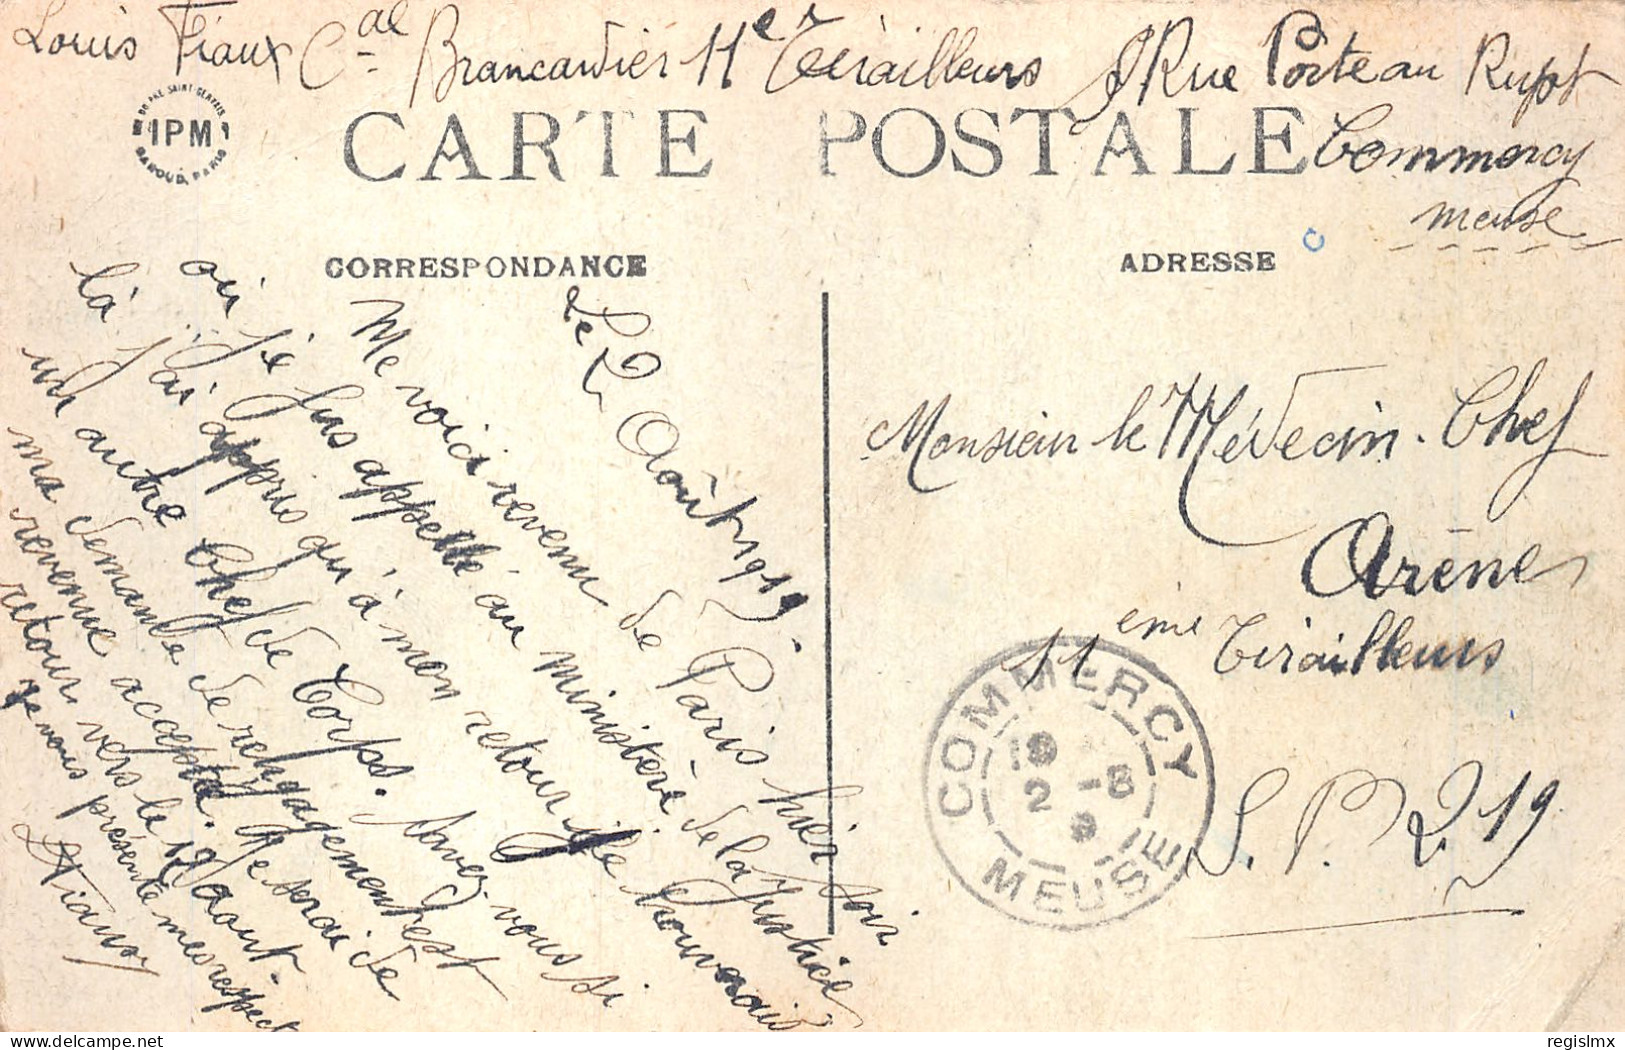 Louis Fiaux Cal Brancardier 11e Tirailleurs 9 Rue Porte au Rupt
Commercy
Meuse
DU PRÉ SAINT-GERVAIS
IPM
PARIS
CARTE POSTALE
CORRESPONDANCE
ADRESSE
Le 2 Août 1919.
Me voici revenu de Paris hier soir
où je fus appellé au ministère de la Justice
là j'ai appris qu'à mon retour je trouverais
un autre Chef de Corps. Savez vous si
ma demande de rengagement est
revenue acceptée. Je serai de
retour vers le 12 aout.
Je vous présente mes respects
L Fiaux
Monsieur le Médecin-Chef
Arène
11 eme Tirailleurs
S. P. 219
COMMERCY
2 -8
MEUSE
regislmx